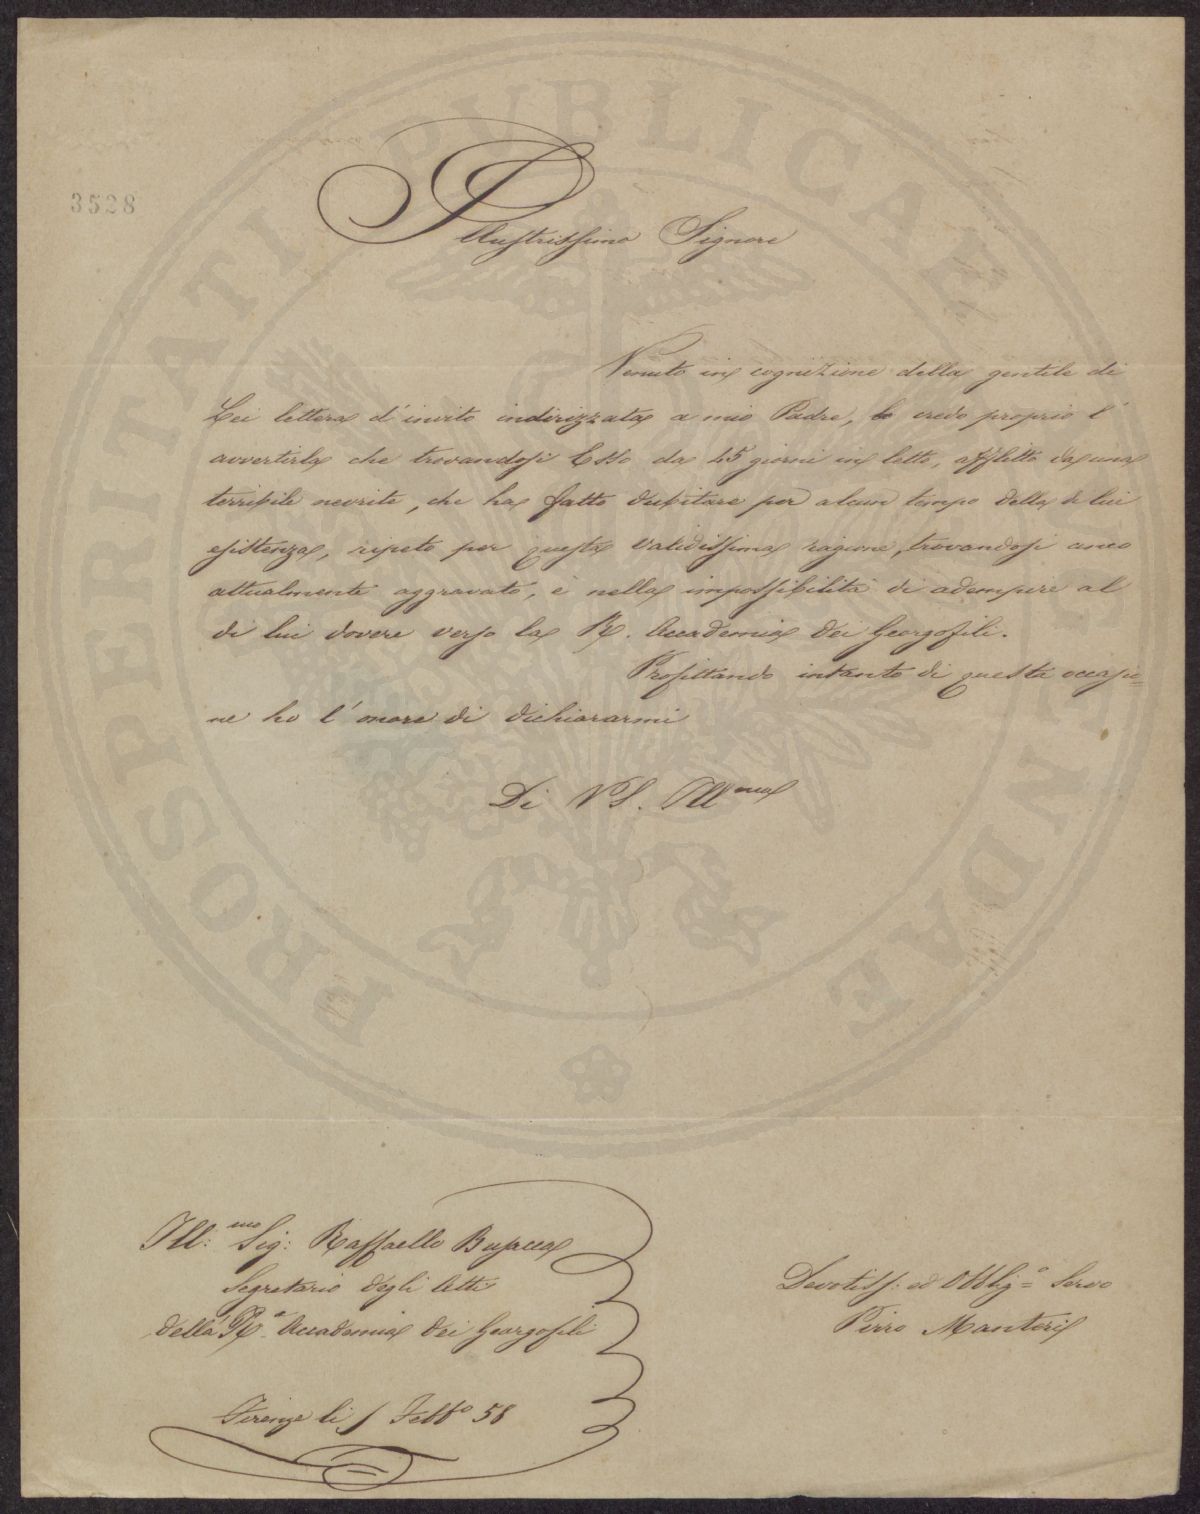 3528
Illustrissimo Signore
Venuto in cognizione della gentile di
Lei lettera d'invito indirizzata a mio Padre, credo proprio l'
avvertirla che trovandosi Esso da 45 giorni in letto, afflitto da una
terribile nevrite, che ha fatto dubitare per alcun tempo della di lui
esistenza, ripeto per questa validissima ragione, trovandosi anco
attualmente aggravato, è nella impossibilità di adempire al
di lui dovere verso la R. Accademia dei Georgofili.
Profittando intanto di questa occasio=
ne ho l'onore di dichiararmi
Di V S. Ill.ma
Ill:mo Sig: Raffaello Busacca
Segretario degli Atti
della R.a Accademia dei Georgofili
Firenze li 1 Febb.o 58
Devotiss: ed Obblig.o Servo
Pirro
PROSPERITATI PUBLICAE AUGENDAE